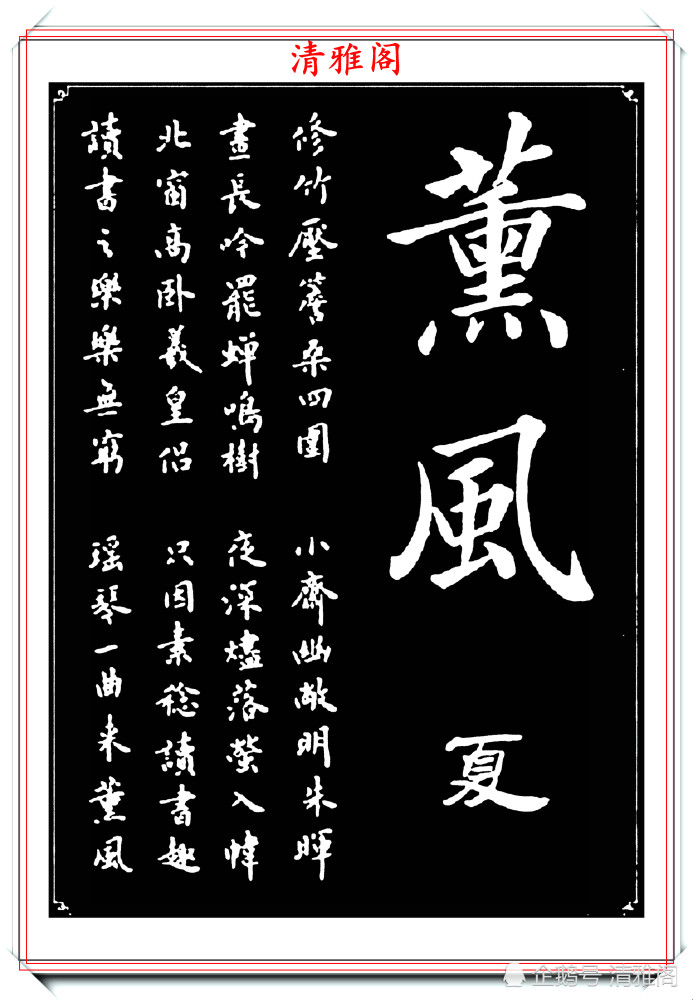 清雅阁
薰風
夏
修竹壓簷桑四圍 小齋幽敞明朱暉
晝長吟罷蟬鳴樹 夜深燼落螢入幃
北窗高卧羲皇侣 只因素稔讀書趣
讀書之樂樂無窮 瑶琴一曲来薰風
企鹅号 清雅阁